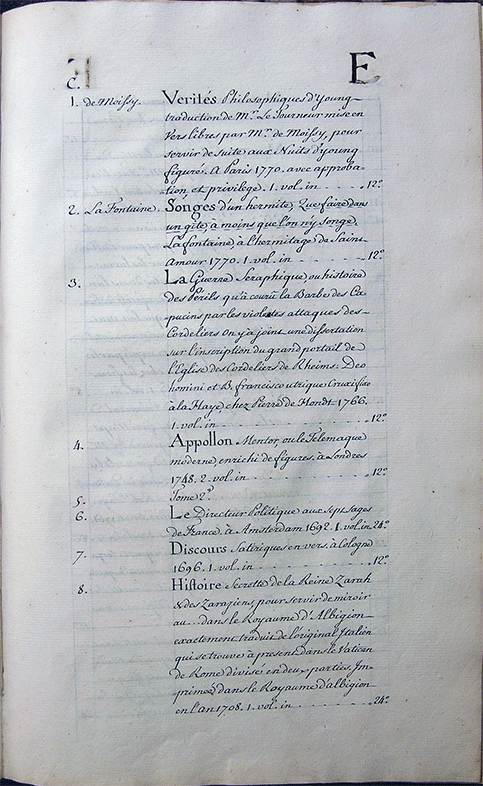 E
C.
1. de Moissy. Verités Philosophiques d'Young
traduction de Mr. Le Tourneur mise en
Vers libres par Mr. de Moissy, pour
servir de suite aux Nuits d'young
figuré. A Paris 1770. avec approba-
tion et privilege. 1. vol. in - - - - 12°
2. La Fontaine. Songes d'un hermite, Que faire dans
un gîte, à moins que l'on n'y songe.
La fontaine, à l'hermitage de Saint
Amour 1770. 1. vol. in - - - - 12°
3. La Guerre Seraphique, ou histoire
des Périls qu'a courû la Barbe des Ca-
pucins par les violentes attaques des
Cordeliers On y a joint une dissertation
sur l'inscription du grand portail de
l'Eglise des Cordeliers de Rheims: Deo
homini et B. francisco utrique Crucifixo
à la Haye, chez Pierre de Hondt 1766.
1. vol. in - - - - 12°
4. Appollon Mentor, ou le Télemaque
moderne, enrichi de figures. à Londres
1748. 2. vol. in - - - - 12°
5. Tome 2d.
6. Le Directeur Politique aux sept sages
de France. à Amsterdam 1692. 1. vol. in 24°
7. Discours Satiriques en vers, à Cologne
1696. 1. vol. in - - - - 12°
8. Histoire Secrette de la Reine Zarah
& des Zaraziens, pour servir de miroir
au... dans le Royaume d'Albigion
exactement traduit de l'original Italien
qui se trouve à present dans le Vatican
de Rome divisé en deux parties Im-
primée dans le Royaume d'albigion
en l'an 1708. 1. vol. in - - - - 24°